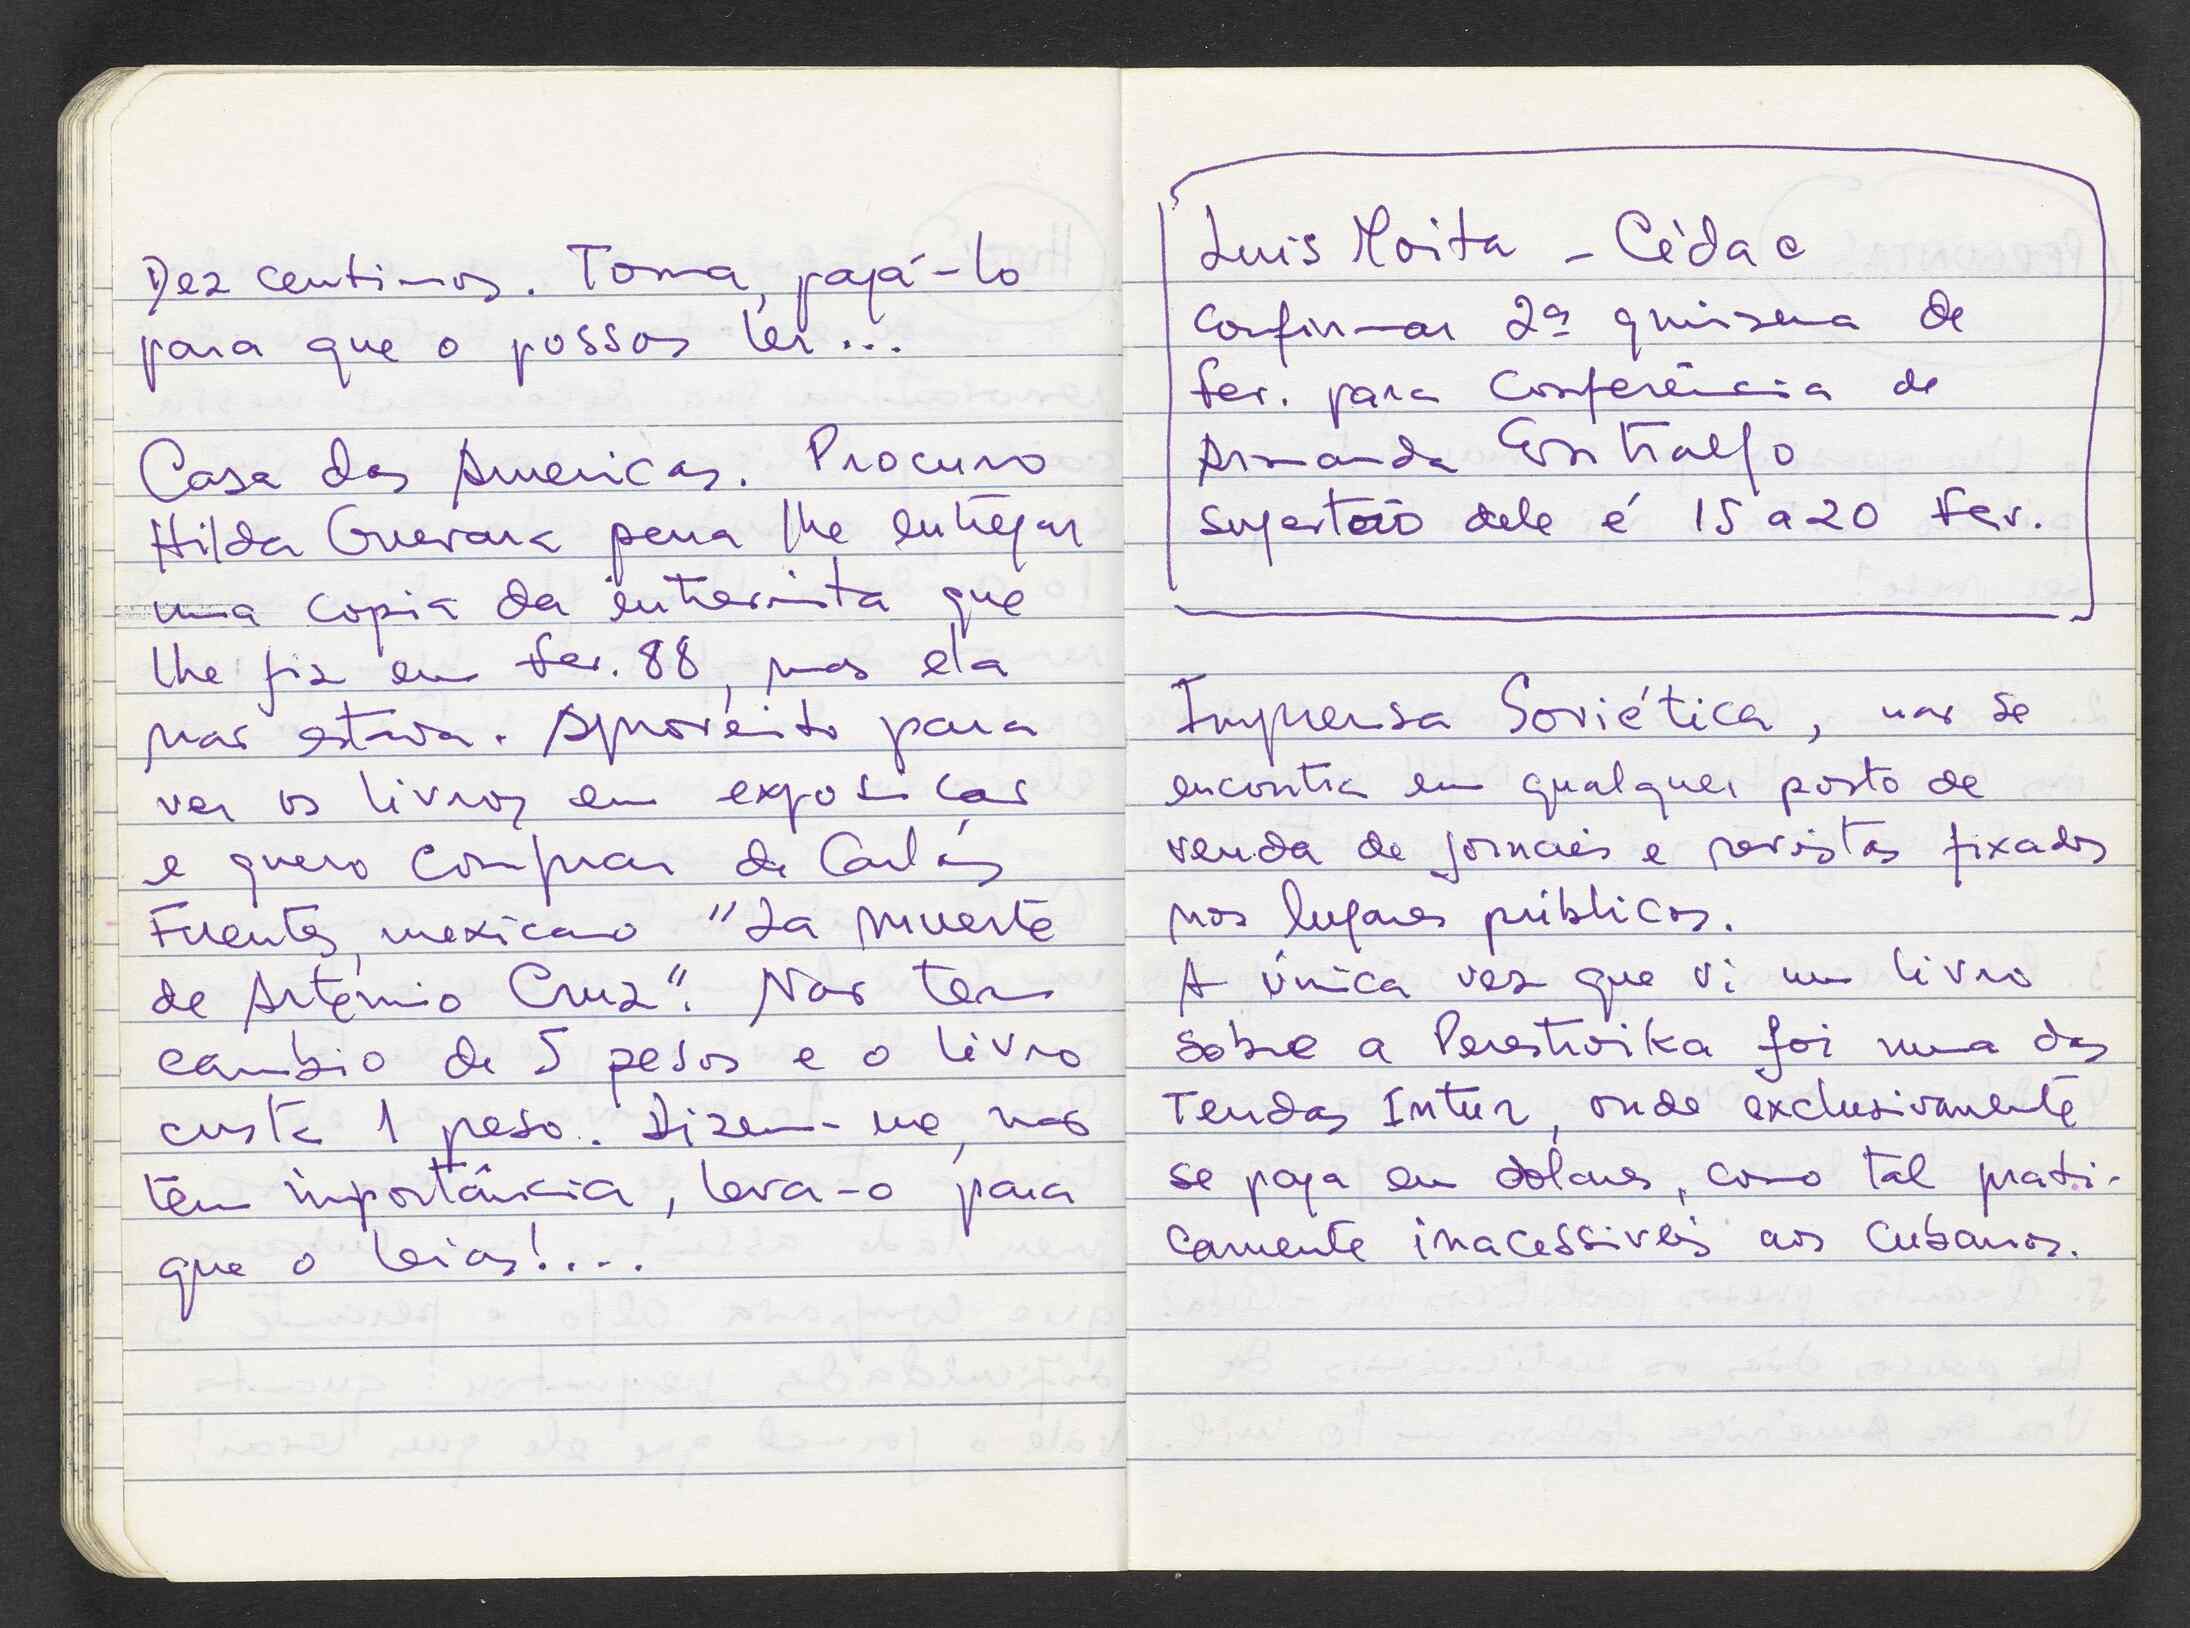 Dez centimos. Toma, pagá-lo
para que o possas ler...
Casa das Americas. Procuro
Hilda Guevara para lhe entregar
uma copia da entrevista que
lhe fiz em Fev. 88, mas ela
nao estava. Aproveito para
ver os livros em exposicao
e quero comprar de Carlos
Fuentes, mexicano "La muerte
de Artemio Cruz". Nao tem
cambio de 5 pesos e o livro
custa 1 peso. Dizem-me, nao
tem importância, leva-o para
que o leias!....
Luis Moita - Cédac
confirmar 2ª quinzena de
fev. para conferência de
Armando
sugestão dele é 15 a 20 Fev.
Imprensa Soviética, nao se
encontra em qualquer posto de
venda de jornais e revistas fixados
nos lugares públicos.
A única vez que vi um livro
sobre a Perestroika foi numa das
Tendas Intur, onde exclusivamente
se paga em dolares, como tal prati-
camente inacessiveis aos Cubanos.